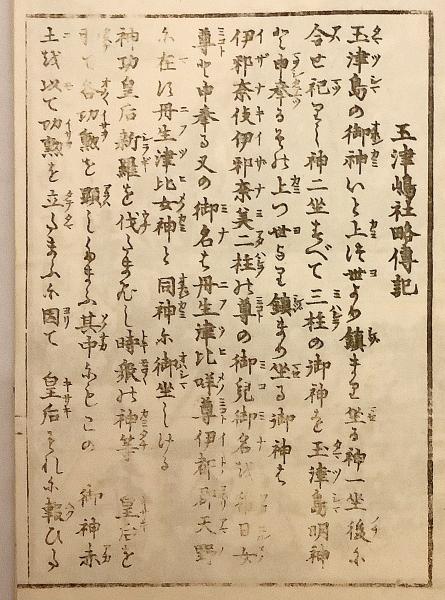 玉津嶋社略傳記
玉津島の御神いと上つ世より鎮まり坐る神一坐後に
合せ祀りし神二坐すべて三柱の御神を玉津島明神
と申奉るその上つ世より鎮まり坐る御神は
伊邪奈伎伊邪奈美二柱の尊の御兒御名稚日女
尊と申奉る又の御名は丹生津比咩尊伊都郡天野
に在す丹生津比女神と同神に御坐しける
神功皇后新羅を伐たまひし時衆の神等 皇后を
て各功勲を顕し給ふ其中にもこの 御神赤
土を以て功勲を立たまふに因て 皇后これに報ひる